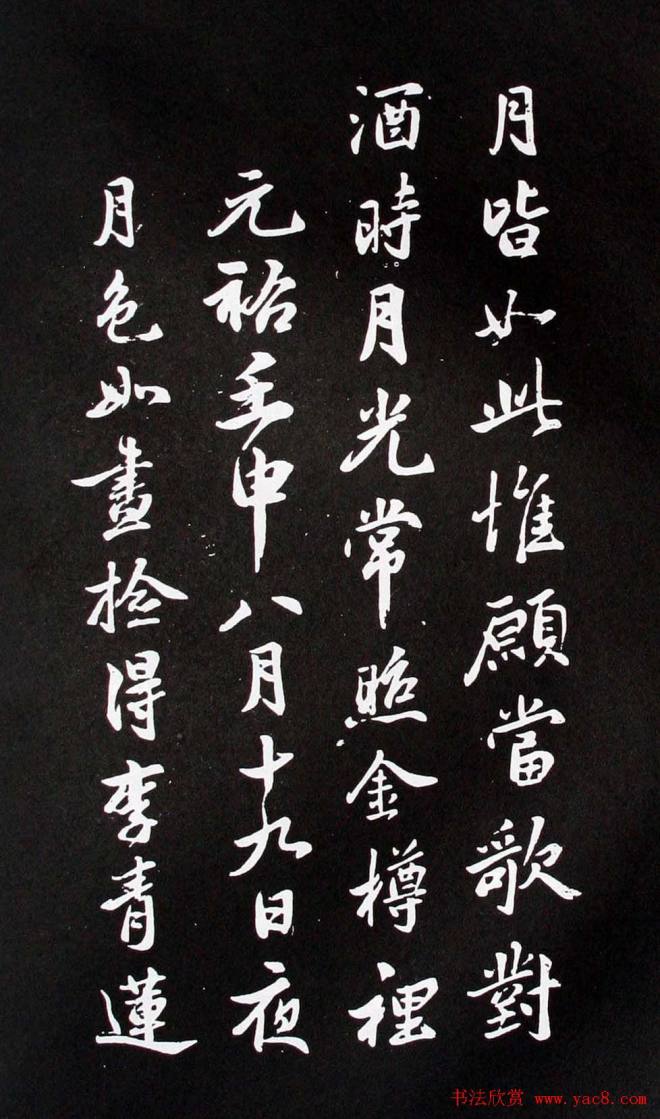 月皆如此惟願當歌對
酒時月光常照金樽裡
元祐壬申八月十九日夜
月色如晝撿得李青蓮
书法欣赏 www.yac8.com